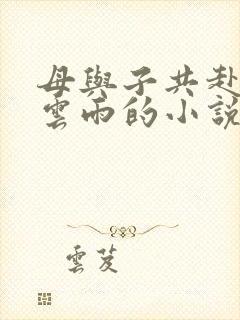 母與子共赴
雲雨的小說
雲芨